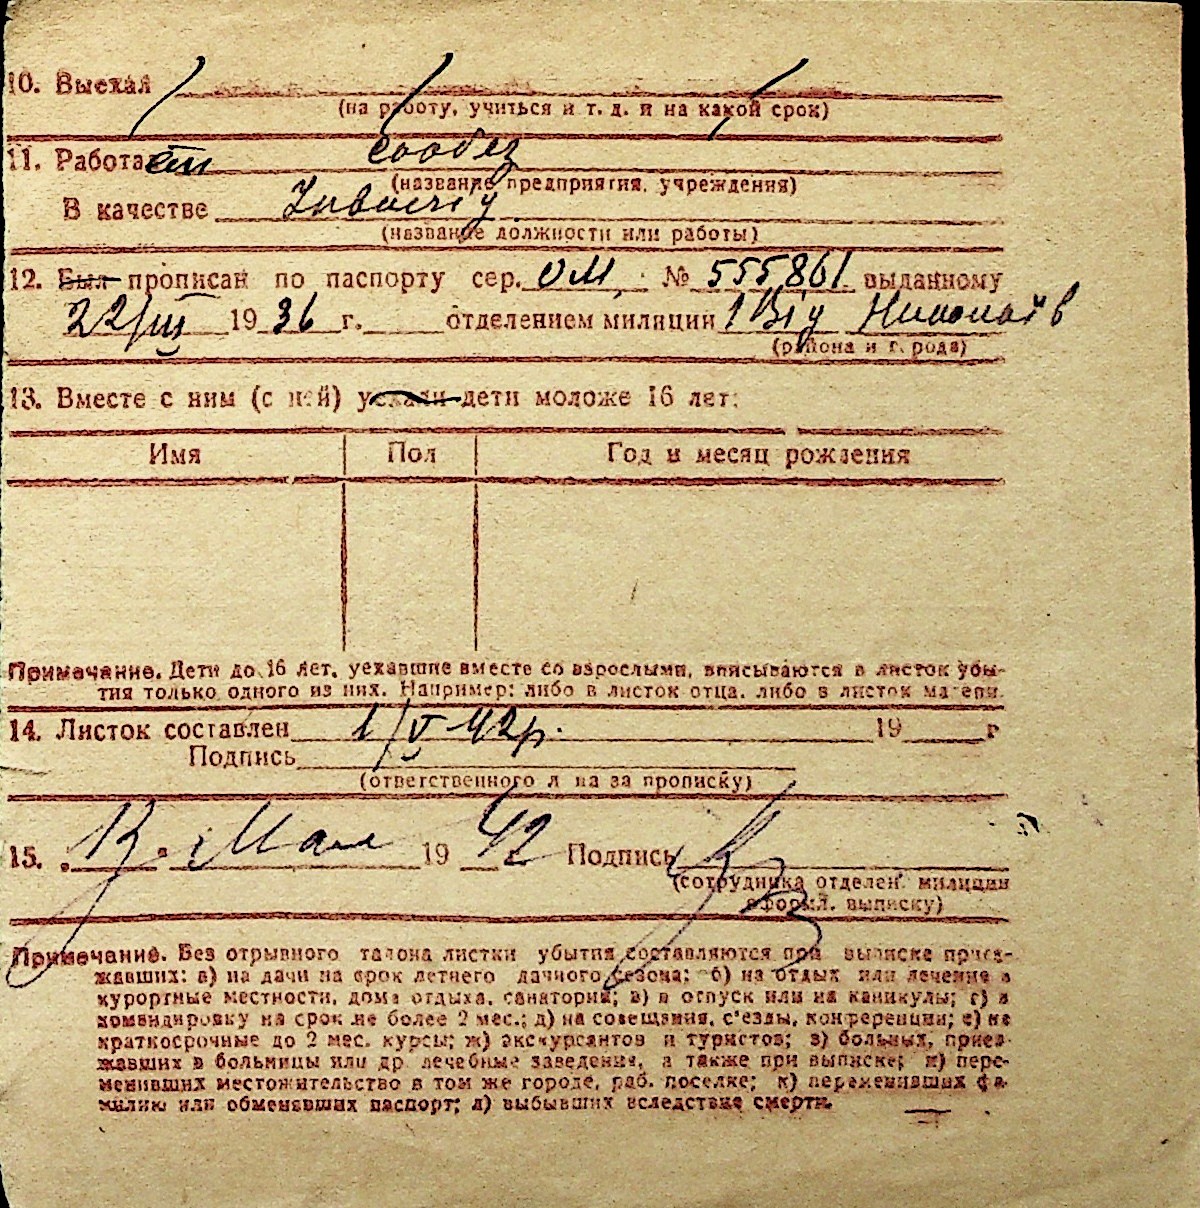 10. Выехал
(на работу, учиться и т. д. и на какой срок)
11. Работает собез
(название предприятия, учреждения)
В качестве Інвалід
(название должности или работы)
12. Был прописан по паспорту сер. ОМ № 555861 выданному
22/III 19 36 г. отделением милиции 1 Від Николаїв
(района и города)
13. Вместе с ним (с ней) уехали дети моложе 16 лет:
Имя Пол Год и месяц рождения
Примечание. Дети до 16 лет, уехавшие вместе со взрослыми, вписываются в листок убы-
тия только одного из них. Например: либо в листок отца, либо в листок матери.
14. Листок составлен 1/V 42р. 19 г
Подпись
(ответственного лица за прописку)
15. „13" Мая 19 42 Подпись
(сотрудника отделен. милиции
оформл. выписку)
Примечание. Без отрывного талона листки убытия составляются при выписке приез-
жавших: а) на дачи на срок летнего дачного сезона; б) на отдых или лечение в
курортные местности, дома отдыха, санатории; в) в отпуск или на каникулы; г) в
командировку на срок не более 2 мес.; д) на совещания, с'езды, конференции; е) на
краткосрочные до 2 мес. курсы; ж) экскурсантов и туристов; з) больных, приез-
жавших в больницы или др. лечебные заведения, а также при выписке; и) пере-
менивших местожительство в том же городе, раб. поселке; к) переменивших фа-
милию или обменявших паспорт; л) выбывших вследствие смерти.